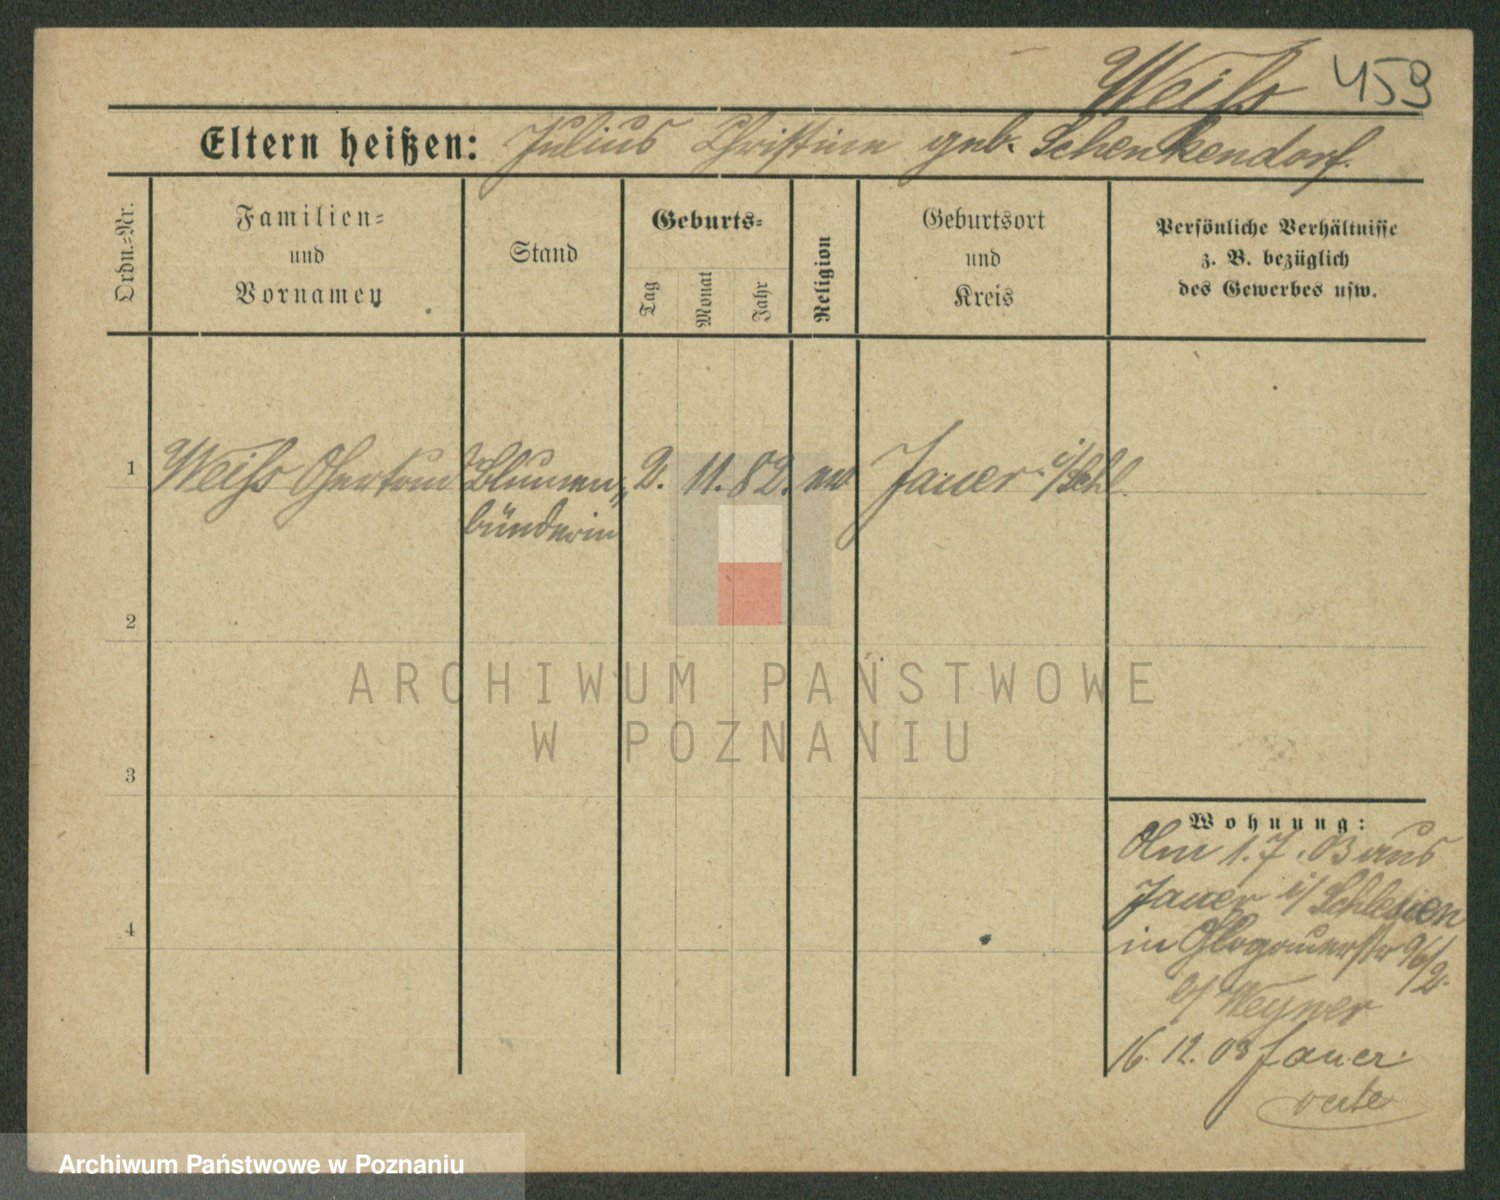 Weiß 459
Eltern heißen: Julius Christine geb. Schenkendorf.
Ordn.=Nr.
Familien=
und
Vornamen
Stand
Geburts=
Tag
Monat
Jahr
Religion
Geburtsort
und
Kreis
Persönliche Verhältnisse
z. B. bezüglich
des Gewerbes usw.
1 Weiß Gertrud Blumen„ 2. 11. 82. ev Jauer i/Schl.
bünderin
2
ARCHIWUM PAŃSTWOWE
W POZNANIU
3
Wohnung:
Am 1.7.03 aus
Jauer i/Schlesien
in Glogauerstr 96/2.
b/ Wegner
4
16. 12. 03 Jauer.
verte
Archiwum Państwowe w Poznaniu